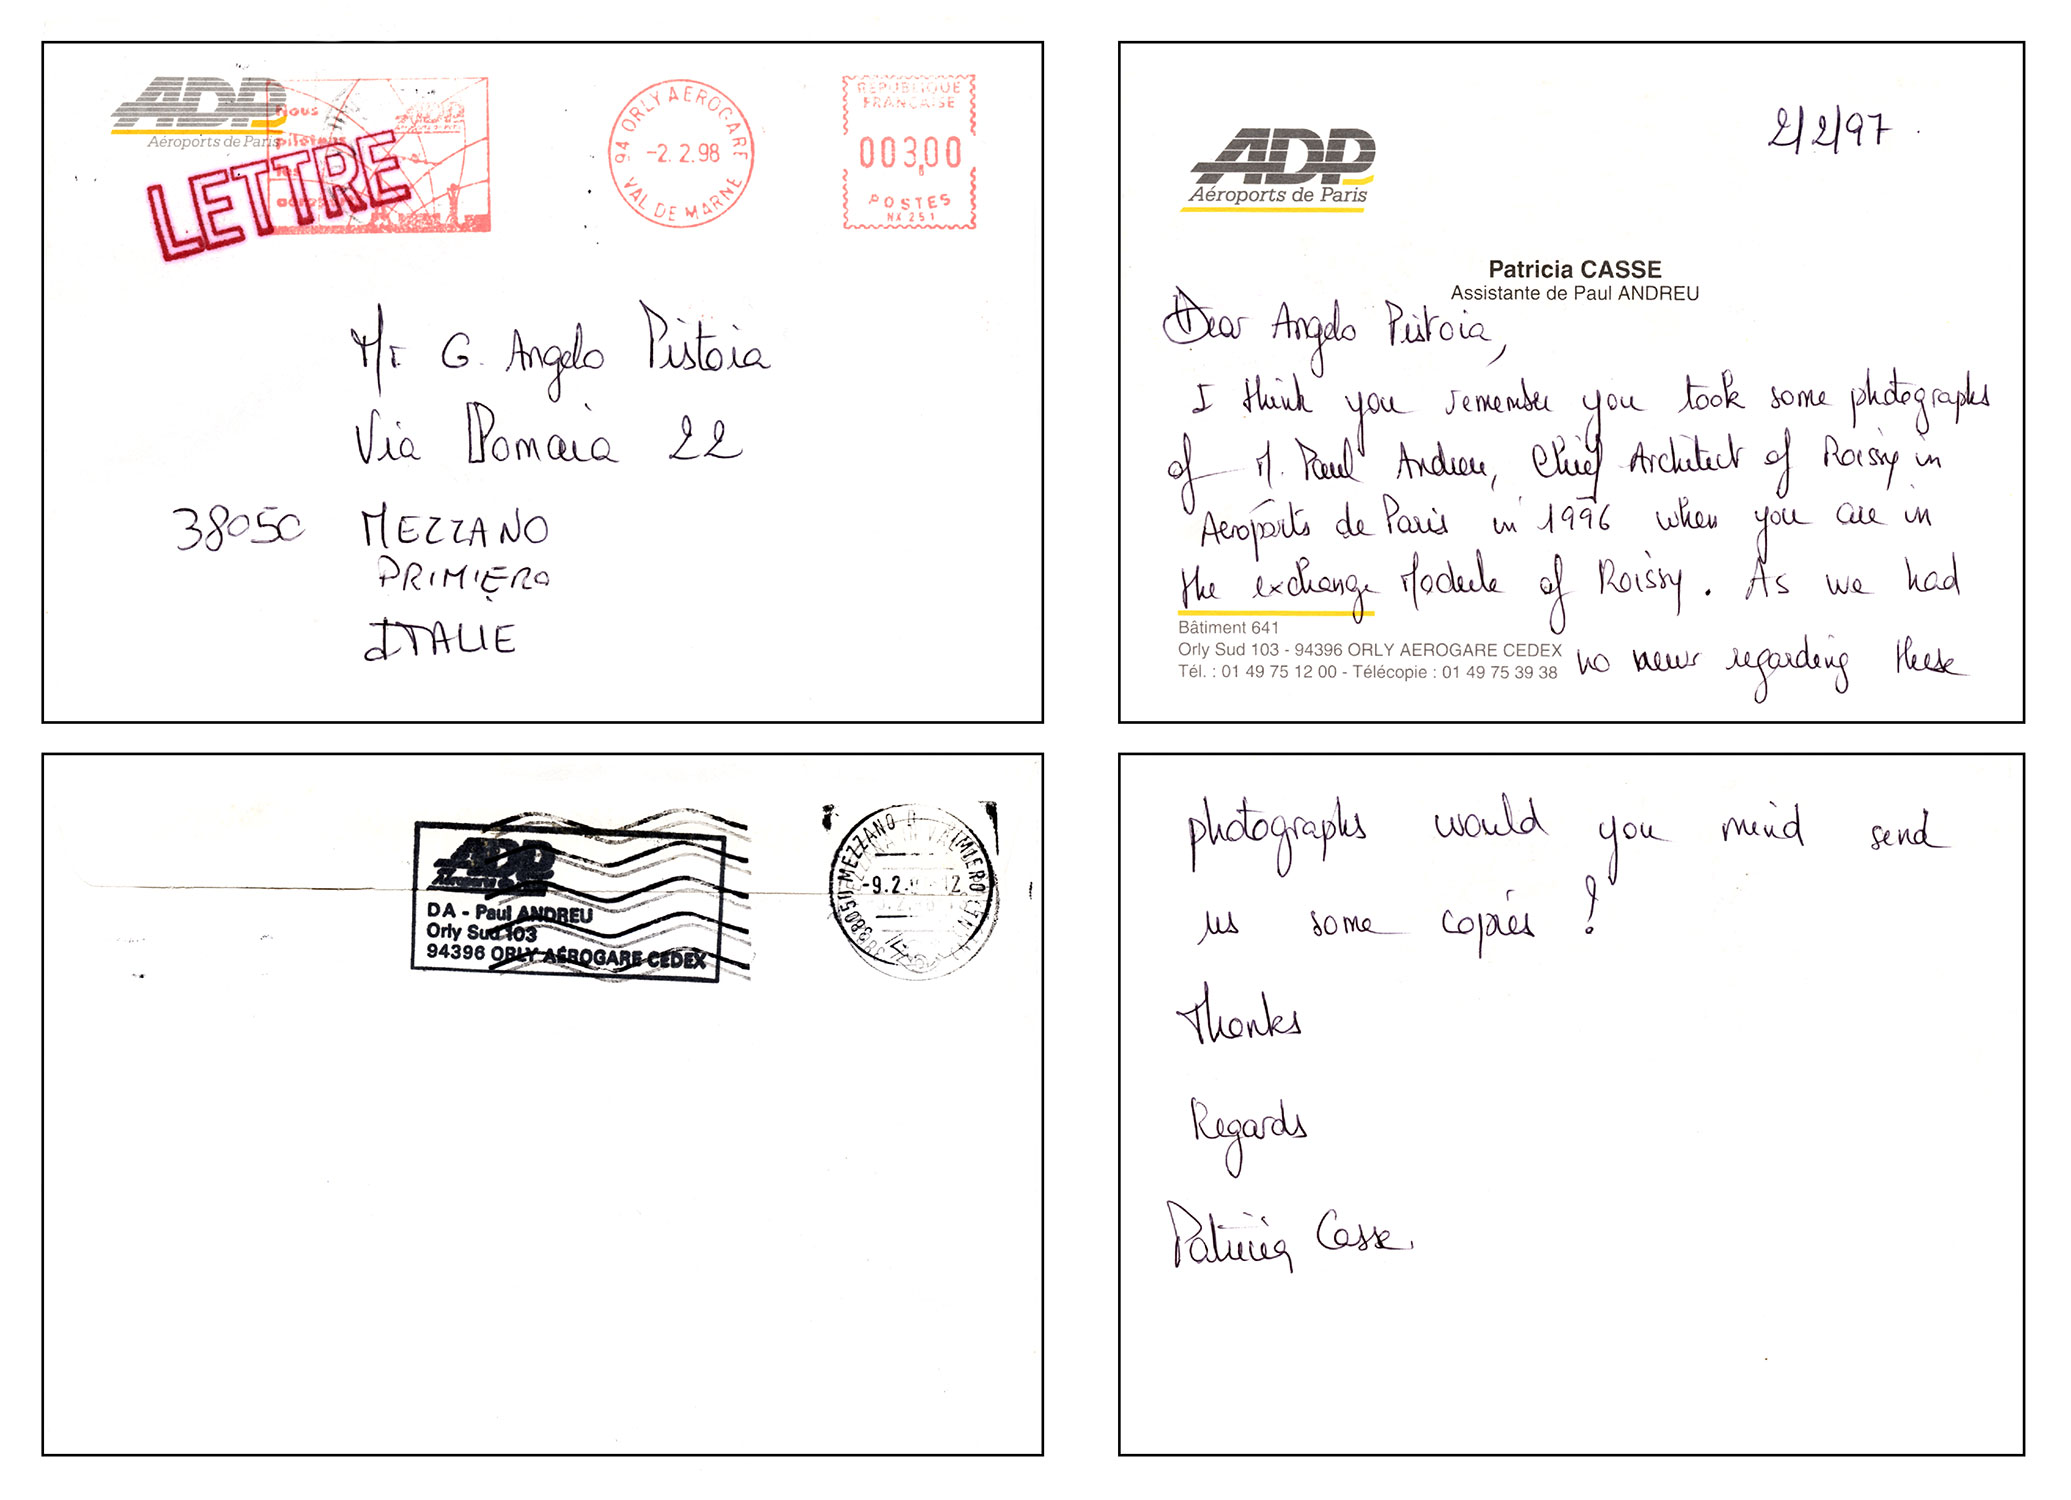 ADP
Aéroports de Paris
Nous
pilotons
les
LETTRE
94 ORLY AEROGARE
-2.2.98
VAL DE MARNE
REPUBLIQUE
FRANÇAISE
003,00
POSTES
NX 251
Mr G. Angelo Pistoia
Via Domaia 22
38050 MEZZANO
PRIMIERO
ITALIE
ADP
Aéroports de Paris
2/2/97
Patricia CASSE
Assistante de Paul ANDREU
Dear Angelo Pistoia,
I think you remember you took some photographs
of M. Paul Andreu, Chief Architect of Roissy in
Aeroports de Paris in 1996 when you are in
the exchange Module of Roissy. As we had
Bâtiment 641
Orly Sud 103 - 94396 ORLY AEROGARE CEDEX
Tél. : 01 49 75 12 00 - Télécopie : 01 49 75 39 38
no news regarding these
ADP
Aéroports de Paris
DA - Paul ANDREU
Orly Sud 103
94396 ORLY AÉROGARE CEDEX
38050 MEZZANO PRIMIERO
-9.2. 12
photographs would you mind send
us some copies ?
Thanks
Regards
Patricia Casse.